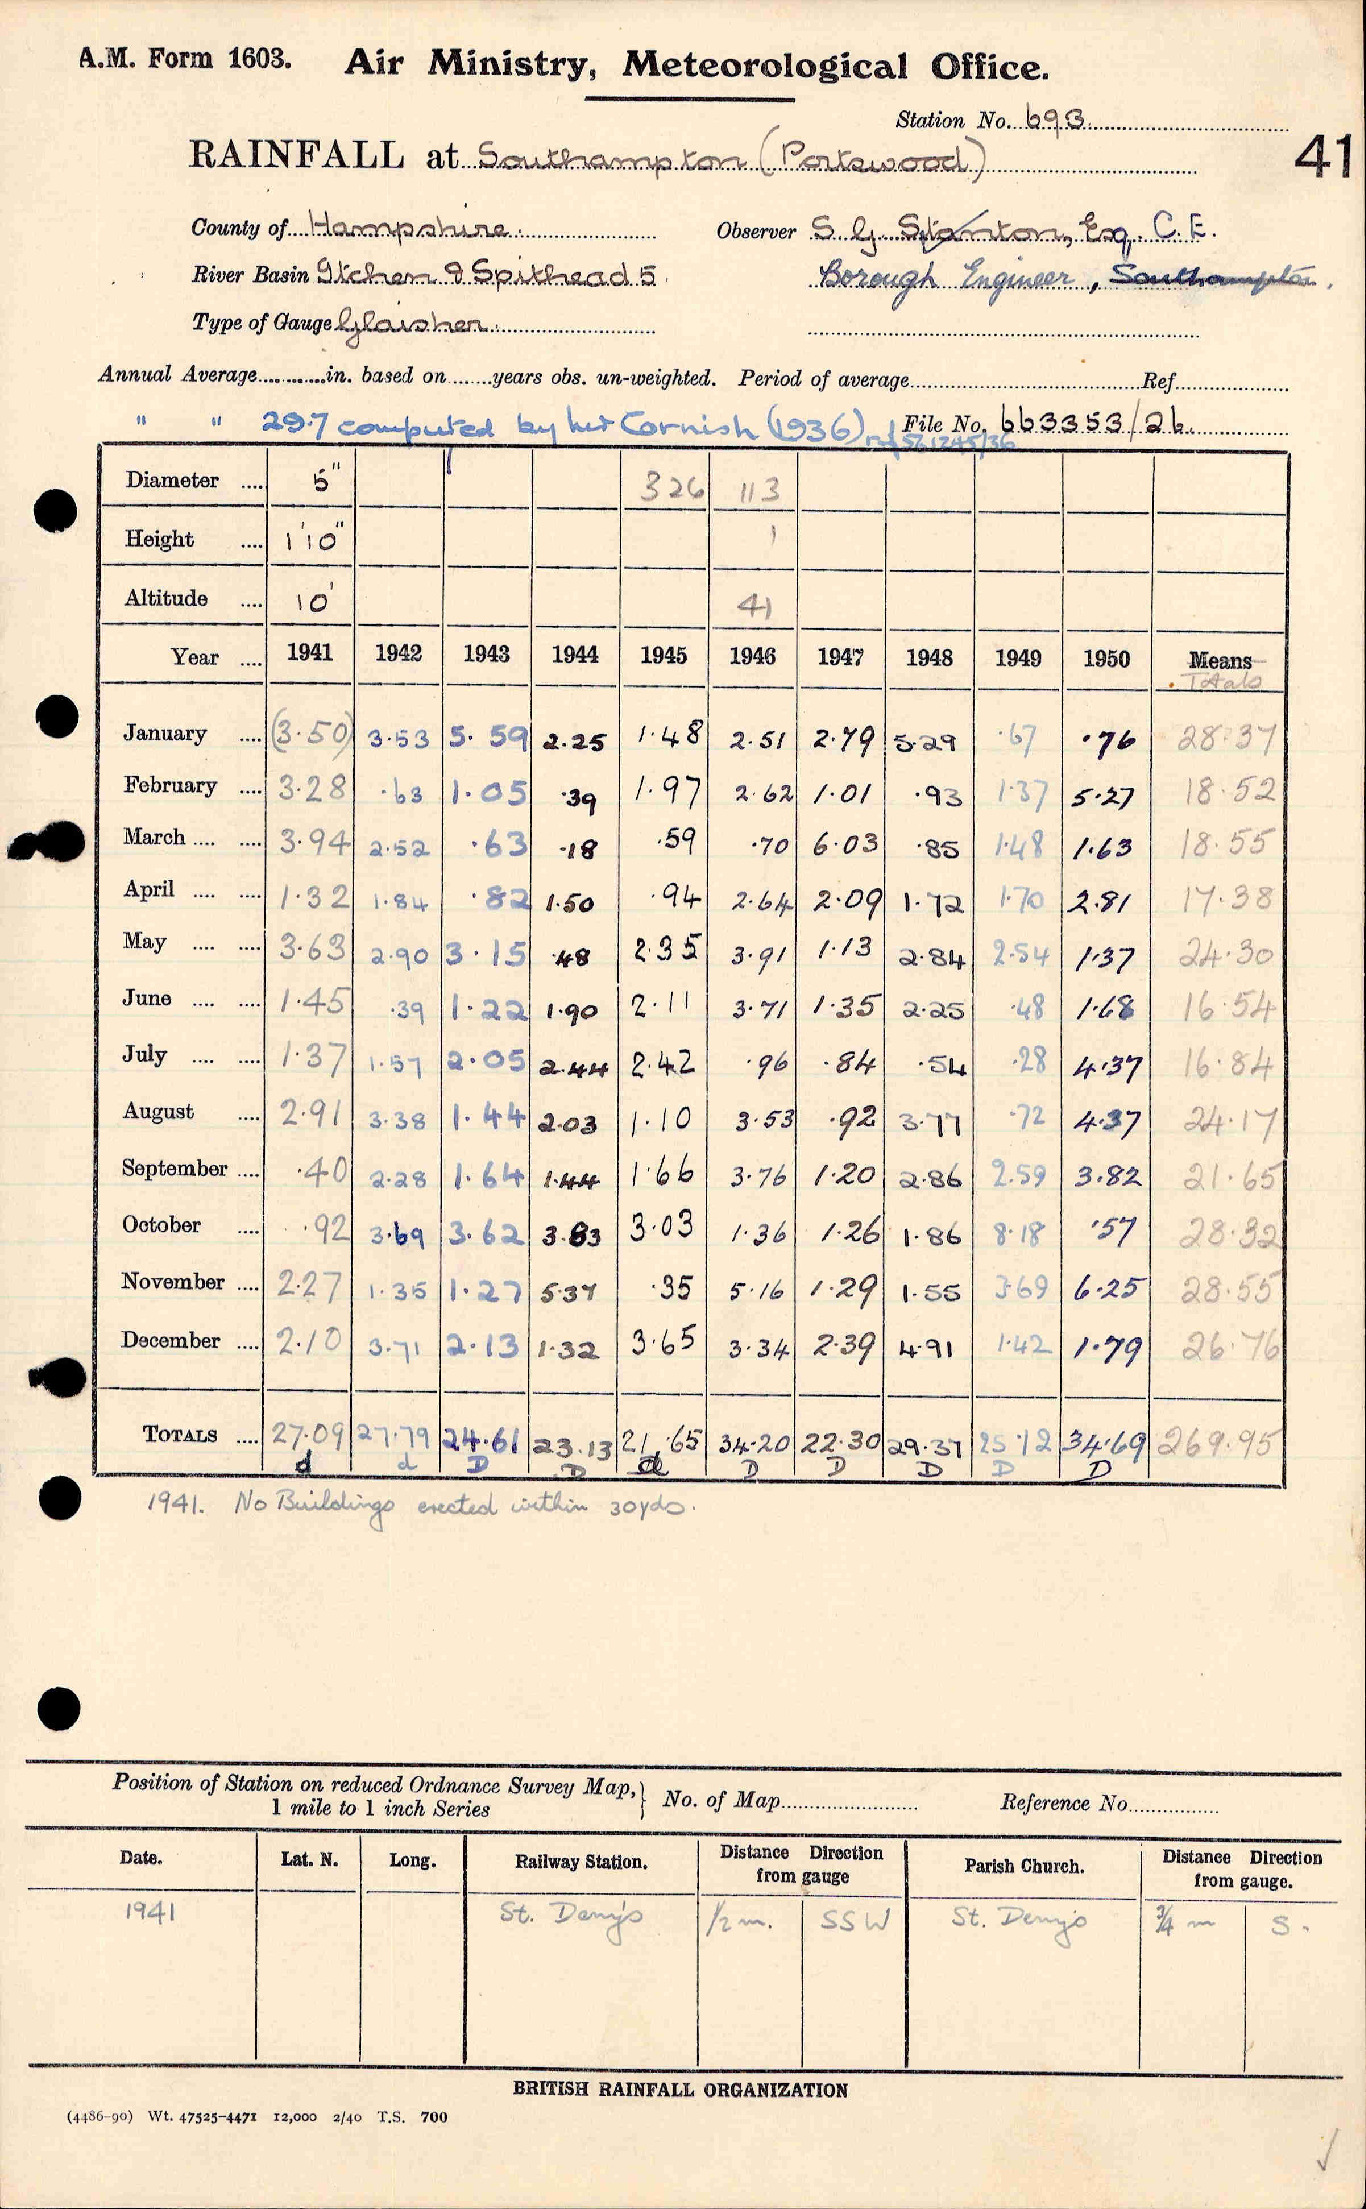 A.M. Form 1603. Air Ministry, Meteorological Office.
Station No. 693.
RAINFALL at Southampton (Portswood)
41
County of Hampshire. Observer S. G. Stanton, Esq. C.E.
River Basin Itchen & Spithead 5. Borough Engineer, Southampton.
Type of Gauge Glaisher.
Annual Average............in. based on.......years obs. un-weighted. Period of average............Ref............
" " 29.7 computed by Cornish (1936) ref 561245/36 File No. 663353/26.
Diameter .... 5" 326 113
Height .... 1'10" 1
Altitude .... 10' 41
Year .... 1941 1942 1943 1944 1945 1946 1947 1948 1949 1950 Means Totals
January .... (3.50) 3.53 5.59 2.25 1.48 2.51 2.79 5.29 .67 .76 28.37
February .... 3.28 .63 1.05 .39 1.97 2.62 1.01 .93 1.37 5.27 18.52
March .... .... 3.94 2.52 .63 .18 .59 .70 6.03 .85 1.48 1.63 18.55
April .... .... 1.32 1.84 .82 1.50 .94 2.64 2.09 1.72 1.70 2.81 17.38
May .... .... 3.63 2.90 3.15 .48 2.35 3.91 1.13 2.84 2.54 1.37 24.30
June .... .... 1.45 .39 1.22 1.90 2.11 3.71 1.35 2.25 .48 1.68 16.54
July .... .... 1.37 1.57 2.05 2.44 2.42 .96 .84 .54 .28 4.37 16.84
August .... 2.91 3.38 1.44 2.03 1.10 3.53 .92 3.77 .72 4.37 24.17
September .... .40 2.28 1.64 1.44 1.66 3.76 1.20 2.86 2.59 3.82 21.65
October .... .92 3.69 3.62 3.83 3.03 1.36 1.26 1.86 8.18 .57 28.32
November .... 2.27 1.35 1.27 5.37 .35 5.16 1.29 1.55 3.69 6.25 28.55
December .... 2.10 3.71 2.13 1.32 3.65 3.34 2.39 4.91 1.42 1.79 26.76
TOTALS .... 27.09 27.79 24.61 23.13 21.65 34.20 22.30 29.37 25.12 34.69 269.95
d d D D d D D D D D
1941. No Buildings erected within 30yds.
Position of Station on reduced Ordnance Survey Map,} No. of Map............ Reference No............
1 mile to 1 inch Series
Date. Lat. N. Long. Railway Station. Distance Direction from gauge Parish Church. Distance Direction from gauge.
1941 St. Denys 1/2 m. SSW St. Denys 3/4 m S.
BRITISH RAINFALL ORGANIZATION
(4486-90) Wt. 47525-4471 12,000 2/40 T.S. 700